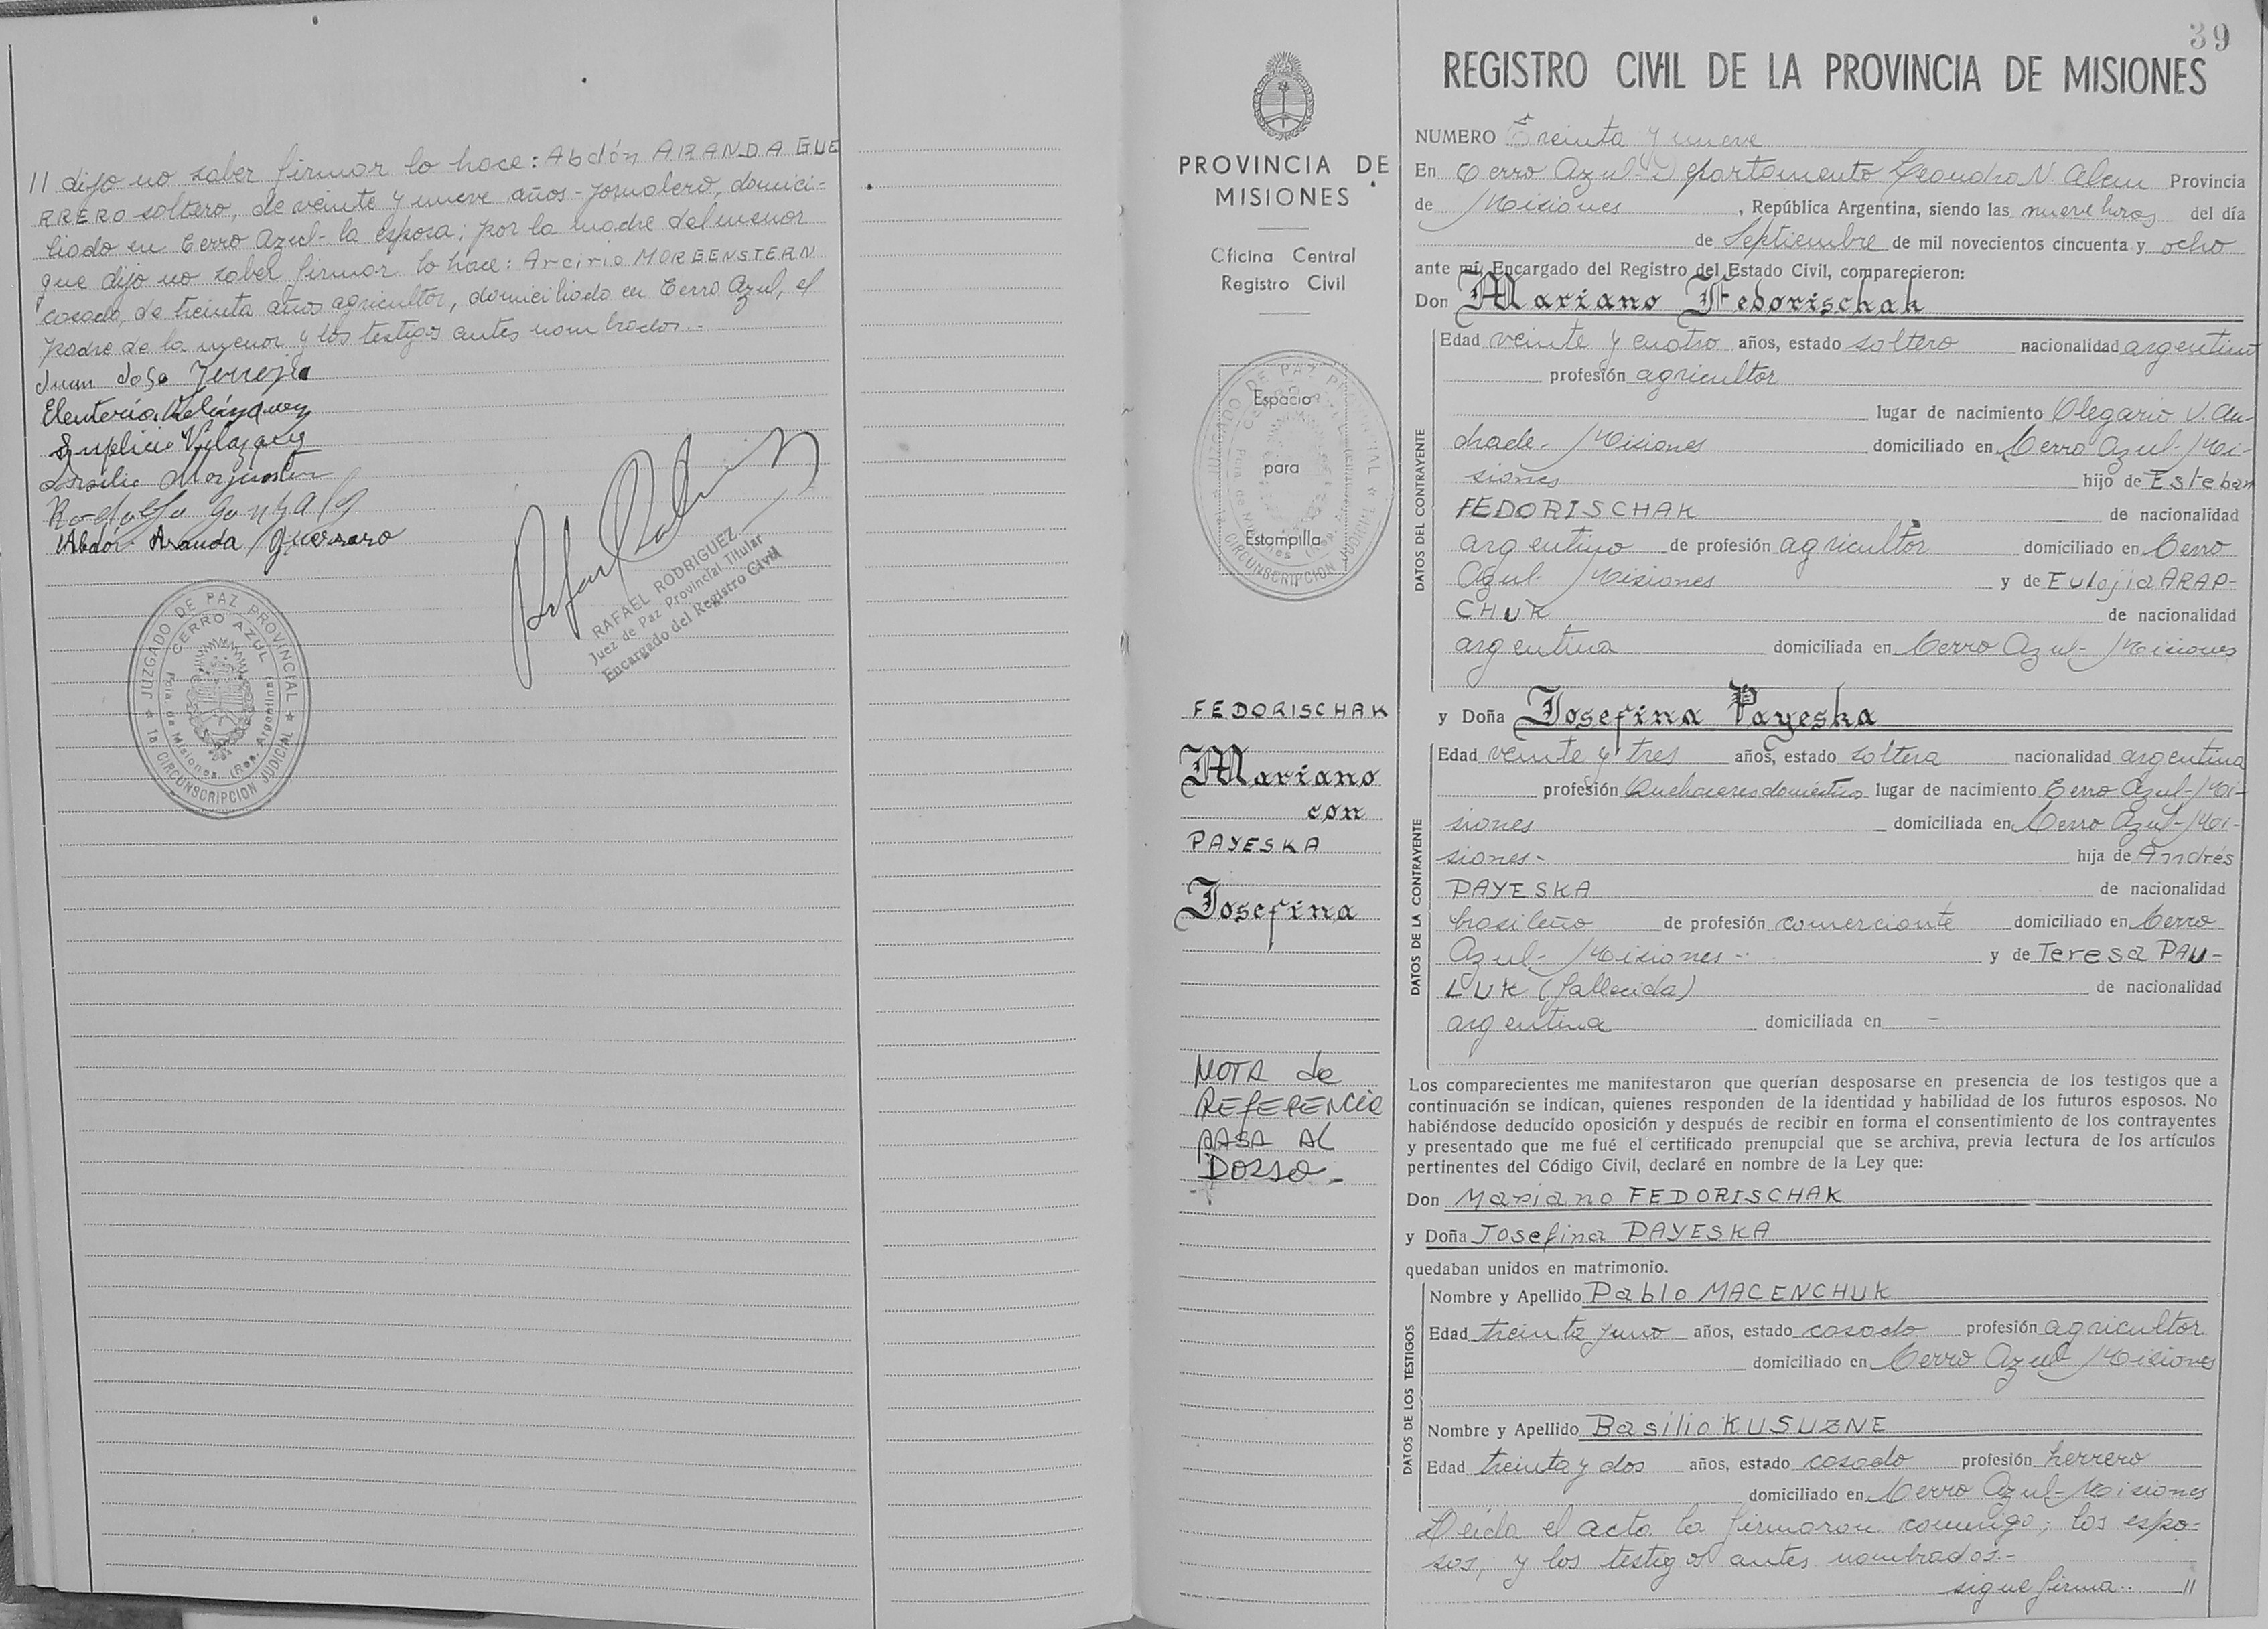 // dijo no saber firmar lo hace: Abdón ARANDA GUE
RRERO soltero, de veinte y nueve años - jornalero, domici-
liado en Cerro Azul - la esposa; por la madre del menor
que dijo no saber firmar lo hace: Arcirio MORGENSTERN
casado, de treinta años agricultor, domiciliado en Cerro Azul, el
padre de la menor y los testigos antes nombrados.-
Juan José
Eleuterio Velázquez
Simplicio Velazquez
Rodolfo
Abdón Aranda Guerrero
RAFAEL RODRIGUEZ
Juez de Paz Provincial Titular
Encargado del Registro Civil
JUZGADO DE PAZ PROVINCIAL
CERRO AZUL
Pcia. de Misiones (Rep. Argentina)
1a CIRCUNSCRIPCION JUDICIAL
PROVINCIA DE
MISIONES
Oficina Central
Registro Civil
Espacio
para
Estampilla
FEDORISCHAK
Mariano
con
PAYESKA
Josefina
NOTA de
REFERENCIA
PASA AL
DORSO.-
39
REGISTRO CIVIL DE LA PROVINCIA DE MISIONES
NUMERO Treinta y nueve
En Cerro Azul - Departamento Leandro N. Alem Provincia
de Misiones, República Argentina, siendo las nueve horas del día
de Septiembre de mil novecientos cincuenta y ocho
ante mí, Encargado del Registro del Estado Civil, comparecieron:
Don Mariano Fedorischak
DATOS DEL CONTRAYENTE
Edad veinte y cuatro años, estado soltero nacionalidad argentino
profesión agricultor
lugar de nacimiento Olegario V. An-
drade - Misiones domiciliado en Cerro Azul - Mi-
siones hijo de Esteban
FEDORISCHAK de nacionalidad
argentino de profesión agricultor domiciliado en Cerro
Azul - Misiones y de Eulojia ARAP-
CHUK de nacionalidad
argentina domiciliada en Cerro Azul - Misiones
y Doña Josefina Payeska
DATOS DE LA CONTRAYENTE
Edad veinte y tres años, estado soltera nacionalidad argentina
profesión Quehaceres domésticos lugar de nacimiento Cerro Azul - Mi-
siones domiciliada en Cerro Azul - Mi-
siones - hija de Andrés
PAYESKA de nacionalidad
brasileño de profesión comerciante domiciliado en Cerro
Azul - Misiones - y de Teresa PAU-
LUK (fallecida) de nacionalidad
argentina domiciliada en -
Los comparecientes me manifestaron que querían desposarse en presencia de los testigos que a
continuación se indican, quienes responden de la identidad y habilidad de los futuros esposos. No
habiéndose deducido oposición y después de recibir en forma el consentimiento de los contrayentes
y presentado que me fué el certificado prenupcial que se archiva, previa lectura de los artículos
pertinentes del Código Civil, declaré en nombre de la Ley que:
Don Mariano FEDORISCHAK
y Doña Josefina PAYESKA
quedaban unidos en matrimonio.
DATOS DE LOS TESTIGOS
Nombre y Apellido Pablo MACENCHUK
Edad treinta y uno años, estado casado profesión agricultor
domiciliado en Cerro Azul Misiones
Nombre y Apellido Basilio KUSUZNE
Edad treinta y dos años, estado casado profesión herrero
domiciliado en Cerro Azul - Misiones
Leída el acta la firmaron conmigo, los espo-
sos, y los testigos antes nombrados.-
sigue firma.. //